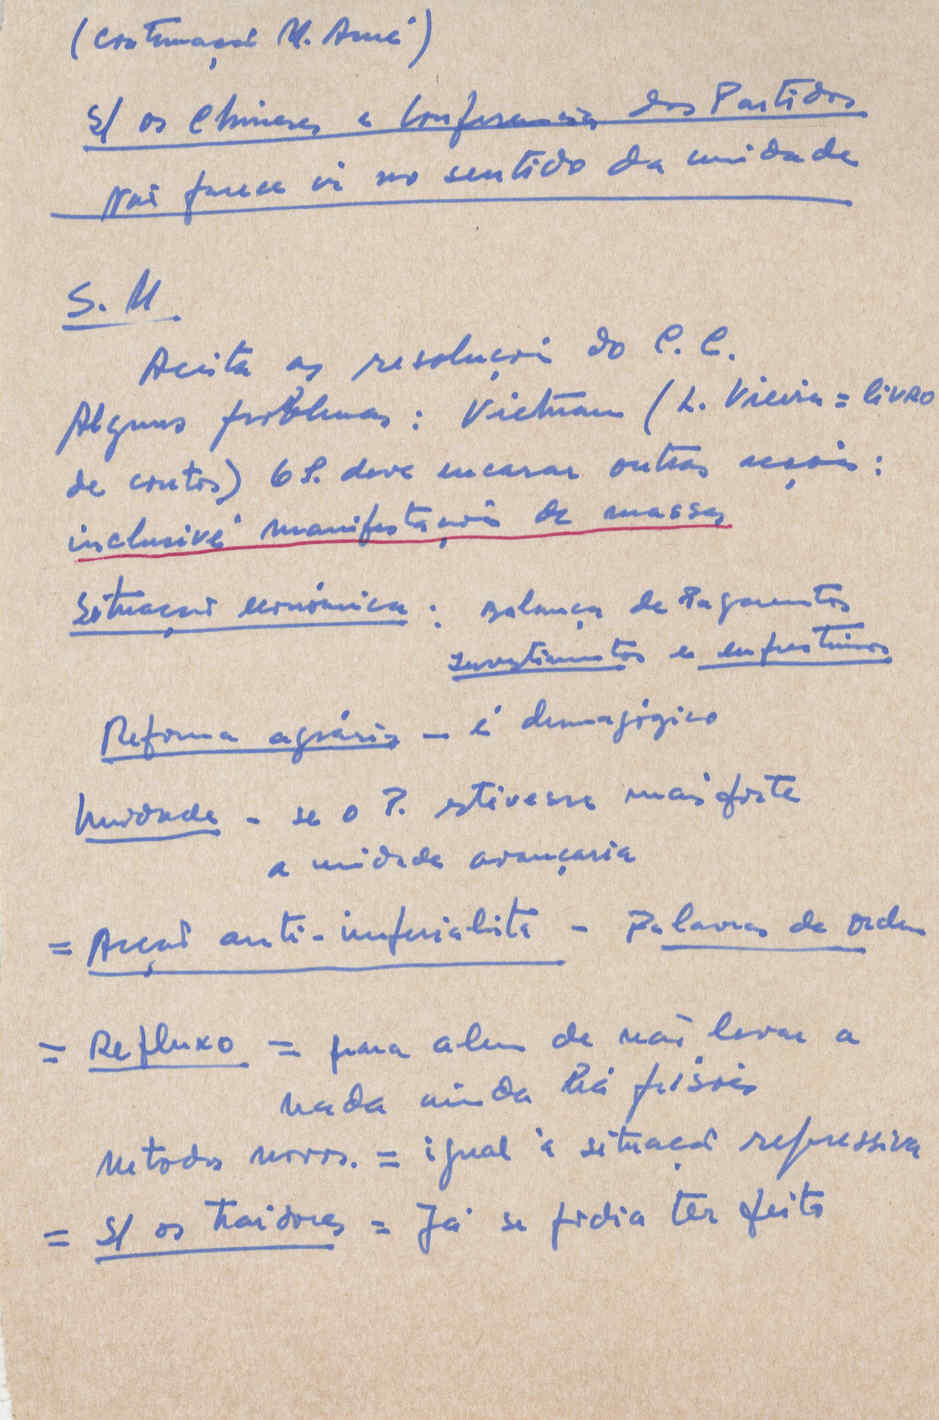 (continuação M. Ané)
S/ os Chineses e Conferencia dos Partidos
Não parece ir no sentido da unidade
S. M.
Aceita as resoluções do C. C.
Alguns problemas: Vietnam (L. Vieira = livro
de contos) 6 P. deve encarar outras acções:
inclusivé manifestações de massas
Situação económica: Balança de Pagamentos
Investimentos e empréstimos
Reforma agrária – é demagógico
Unidade – se o P. estivesse mais forte
a unidade avançaria
= Acção anti-imperialista – Palavras de ordem
= Refluxo = para alem de não levar a
nada ainda há prisões
Metodos novos. = igual à situação repressiva
= S/ os traidores = Já se podia ter feito